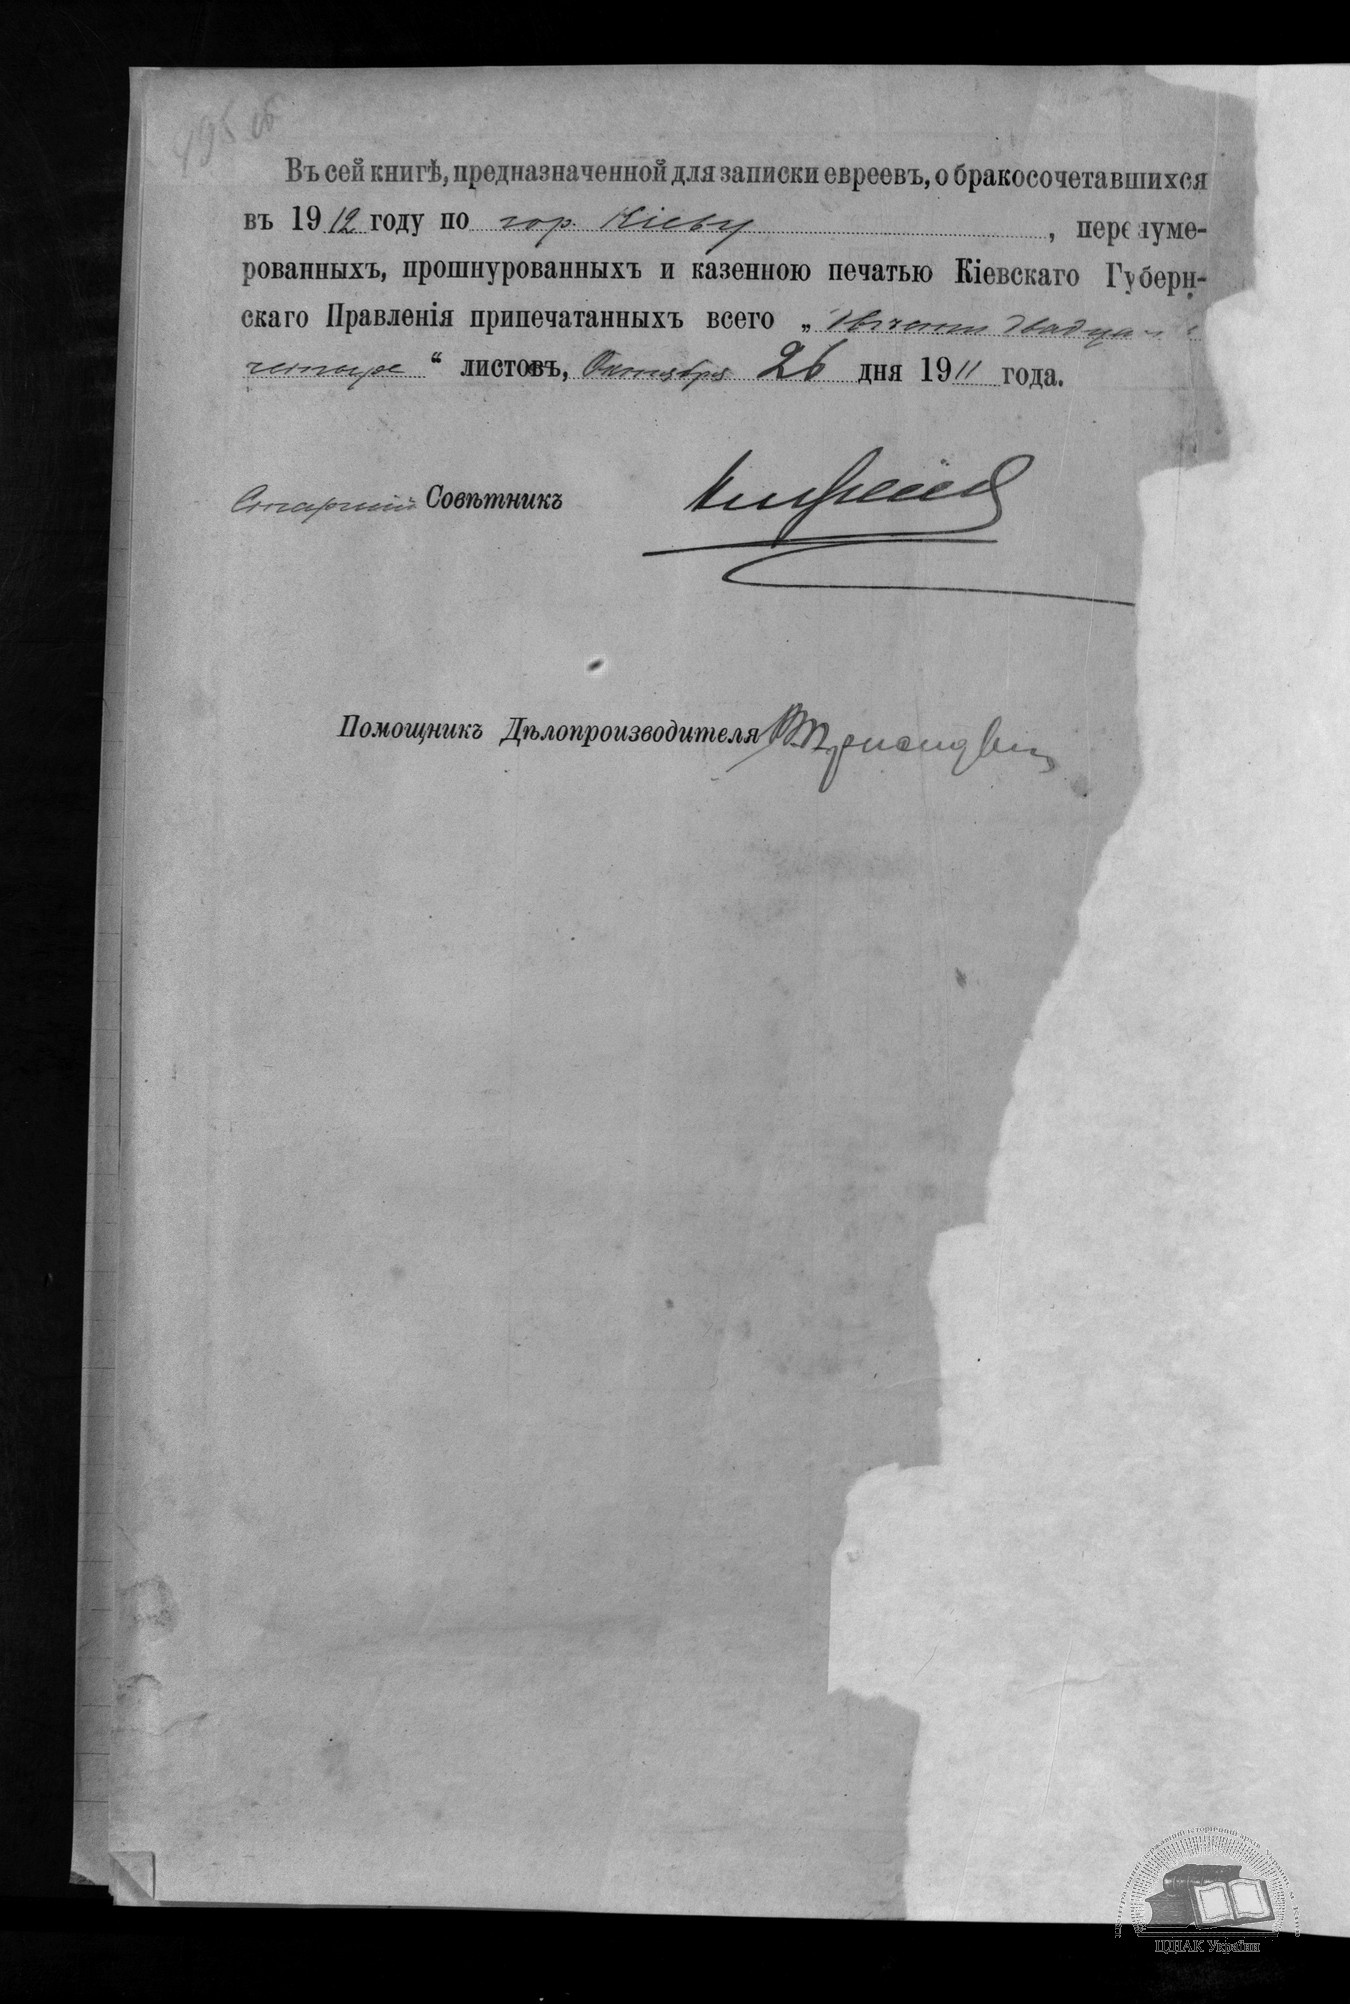 495 об
Въ сей книгѣ, предназначенной для записки евреевъ, о бракосочетавшихся
въ 1912 году по гор. Кіеву, перенуме-
рованныхъ, прошнурованныхъ и казенною печатью Кіевскаго Губерн-
скаго Правленія припечатанныхъ всего „двѣсти двадцать
четыре“ листовъ, Октября 26 дня 1911 года.
Старшій Совѣтникъ
Помощникъ Дѣлопроизводителя
ЦДІАК України